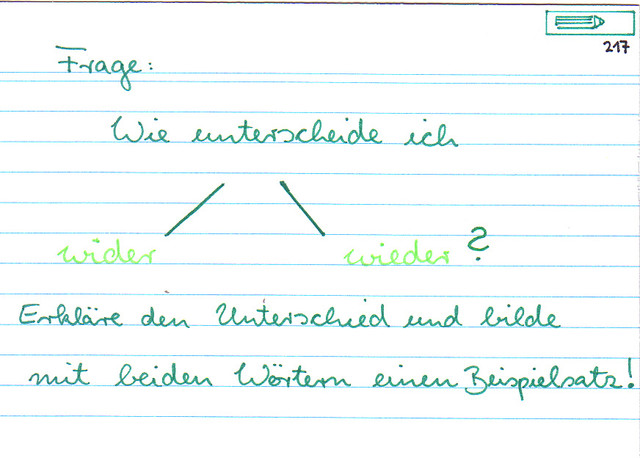 217
Frage:
Wie unterscheide ich
wider wieder?
Erkläre den Unterschied und bilde
mit beiden Wörtern einen Beispielsatz!